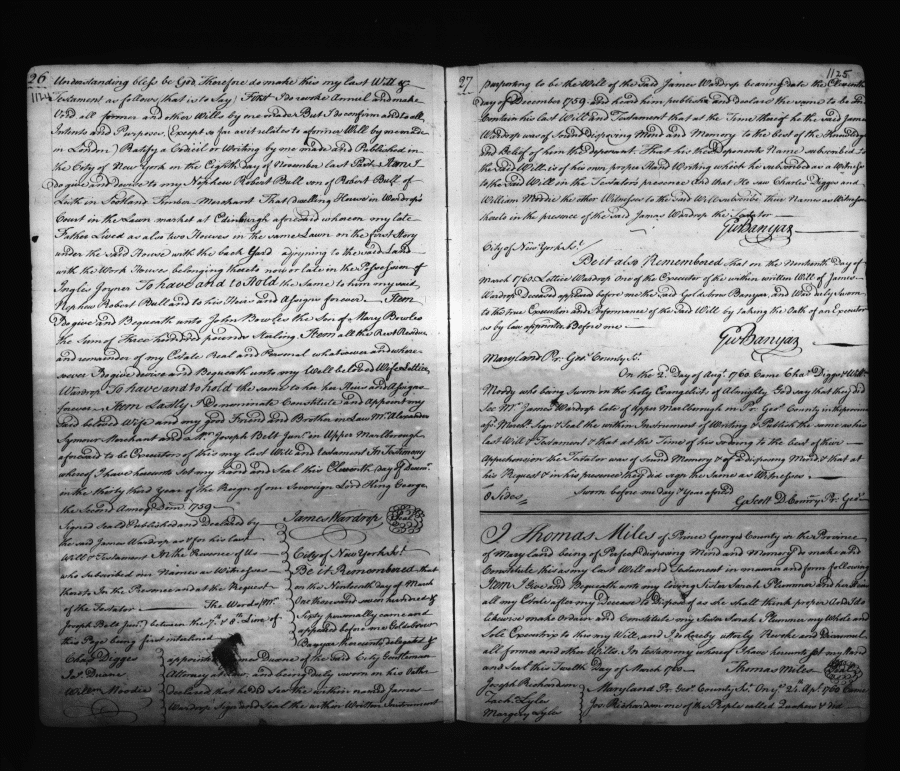 26
1124
Understanding bless be God Therefore do make this my last Will &
Testament as follows that is to Say, First I do revoke Annul and make
Void all former and other Wills by me made But I do confirm and to all
Intents and Purposes Except so far as it relates to a former Will by me made
in London) Ratify a Codicil or Writing by me made and Published in
the City of New York on the Eighth day of November last Past Item I
do give and devise to my Nephew Robert Bull son of Robert Bull of
Leith in Scotland Timber Merchant That Dwelling House in Wardrop's
Court in the Lawn market at Edinburgh aforesaid whereon my late
Father Lived as also two Houses in the same Lawn on the first Story
under the said House with the back Yard adjoyning to the said Land
with the Work House belonging thereto now or late in the Possession of
Ingles Joyner To have and to Hold the same to him my said
Nephew Robert Bull and to his Heirs and Assigns forever Item
I give and Bequeath unto John Bowles the Son of Mary Bowles
the Sum of Three hundred pounds Sterling Item all the Rest Residue
and remainder of my Estate Real and Personal whatsoever and where-
soever I give devise and Bequeath unto my Well beloved Wife Lettice
Wardrop To have and to hold the same to her her Heirs and Assigns
forever Item Lastly I Denominate Constitute and Appoint my
said beloved Wife and my good Friend and Brother in Law Mr. Alexander
Symmer Merchant and a Mr. Joseph Belt Junr. in Upper Marlborough
aforesaid to be Executors of this my last Will and testament In Testimony
whereof I have hereunto set my hand and Seal this Eleventh day of Decemr.
in the thirty third Year of the Reign of our Sovereign Lord King George
the Second Annoq Dom. 1759
Signed Seal'd Published and Declared by
the said James Wardrop as & for his last
Will & Testament In the Presence of Us
who subscribed our Names as Witnesses
thereto In the Presence and at the Request
of the Testator The Words (Mr.
Joseph Belt Junr.) between the 7th & 8 Line of
this Page being first interlined
Chas. Digges
Jas. Duane
Willm Moodie
James Wardrop
City of New York Sst.
Be it Remembered that
on the Nineteenth Day of March
One thousand seven hundred &
Sixty personally came and
appeared before me Goldsbrow
Banyar hereunto delegated &
appointed James Duane of the said City Gentleman
Attorney at Law, and being duly sworn on his Oath
declared that he did See the within named James
Wardrop Sign and Seal the within Written Instrument
27
1125
purporting to be the Will of the said James Wardrop bearing date the Eleventh
Day of December 1759 and heard him publish and declare the same to be and
Contain his last Will and Testament that at the Time thereof he the said James
Wardrop was of Sound Disposing Mind and Memory to the best of the Knowledge
and Belief of him the Deponent. That his the Deponents Name subscribed to
the said Will is of his own proper Hand Writing which he subscribed as a Witness
to the said Will in the Testators presence And that He saw Charles Digges and
William Moodie the other Witnesses to the said Will subscribe their Names as Witnesses
thereto in the presence of the said James Wardrop the Testator
Gw Banyar
City of New York Ss.
Be it also Remembered that on the Nineteenth Day of
March 1760. Lettice Wardrop One of the Executors of the within written Will of James
Wardrop Deceased appeared before me the said Goldsbrow Banyar, and Was duly Sworn
to the true Execution and Performance of the said Will by taking the Oath of an Executor
as by law appointed Before me
Gw Banyar
Maryland Pr. Geos. County Ss.
On the 2d. Day of Augt. 1760. Came Chas. Digges & Willm.
Moody who being Sworn on the holy Evangelists of Almighty God say that they did
See Mr. James Wardrop late of Upper Marlborough in Pr. Geos. County in the province
of Maryld. Sign & Seal the within Instrument of Writing & Publish the same as his
last Will & Testament & that at the Time of his so doing to the best of their
Apprehension the Testator was of Sound Memory & of a disposing Mind, & that at
his Request & in his presence they did sign the Same as Witnesses
8 Sides Sworn before me Day & Year aforesd.
G Scott D. Commy. Pr. Geos.
I Thomas Miles of Prince Georges County in the Province
of Maryland being of Perfect disposing Mind and Memory do make and
Constitute this as my last Will and Testament in manner and form following
Item I Give and Bequeath unto my loving Sister Sarah Plummer and her Heirs
all my Estate after my Decease to Dispose of as she shall think proper And I do
likewise make Ordain and Constitute my Sister Sarah Plummer my Whole and
Sole Executrix to this my Will, and I do hereby utterly Revoke and Disannul
all forms and other Wills. In testimony whereof I have hereunto set my Hand
and Seal this Twelfth Day of March 1760. Thomas Miles
Joseph Richardson
Zach. Lyles
Margery Lyles
Maryland Pr. Geos. County Ss. On ye. 24th. Apl. 1760 Came
Jos. Richardson one of the People called Quakers & did